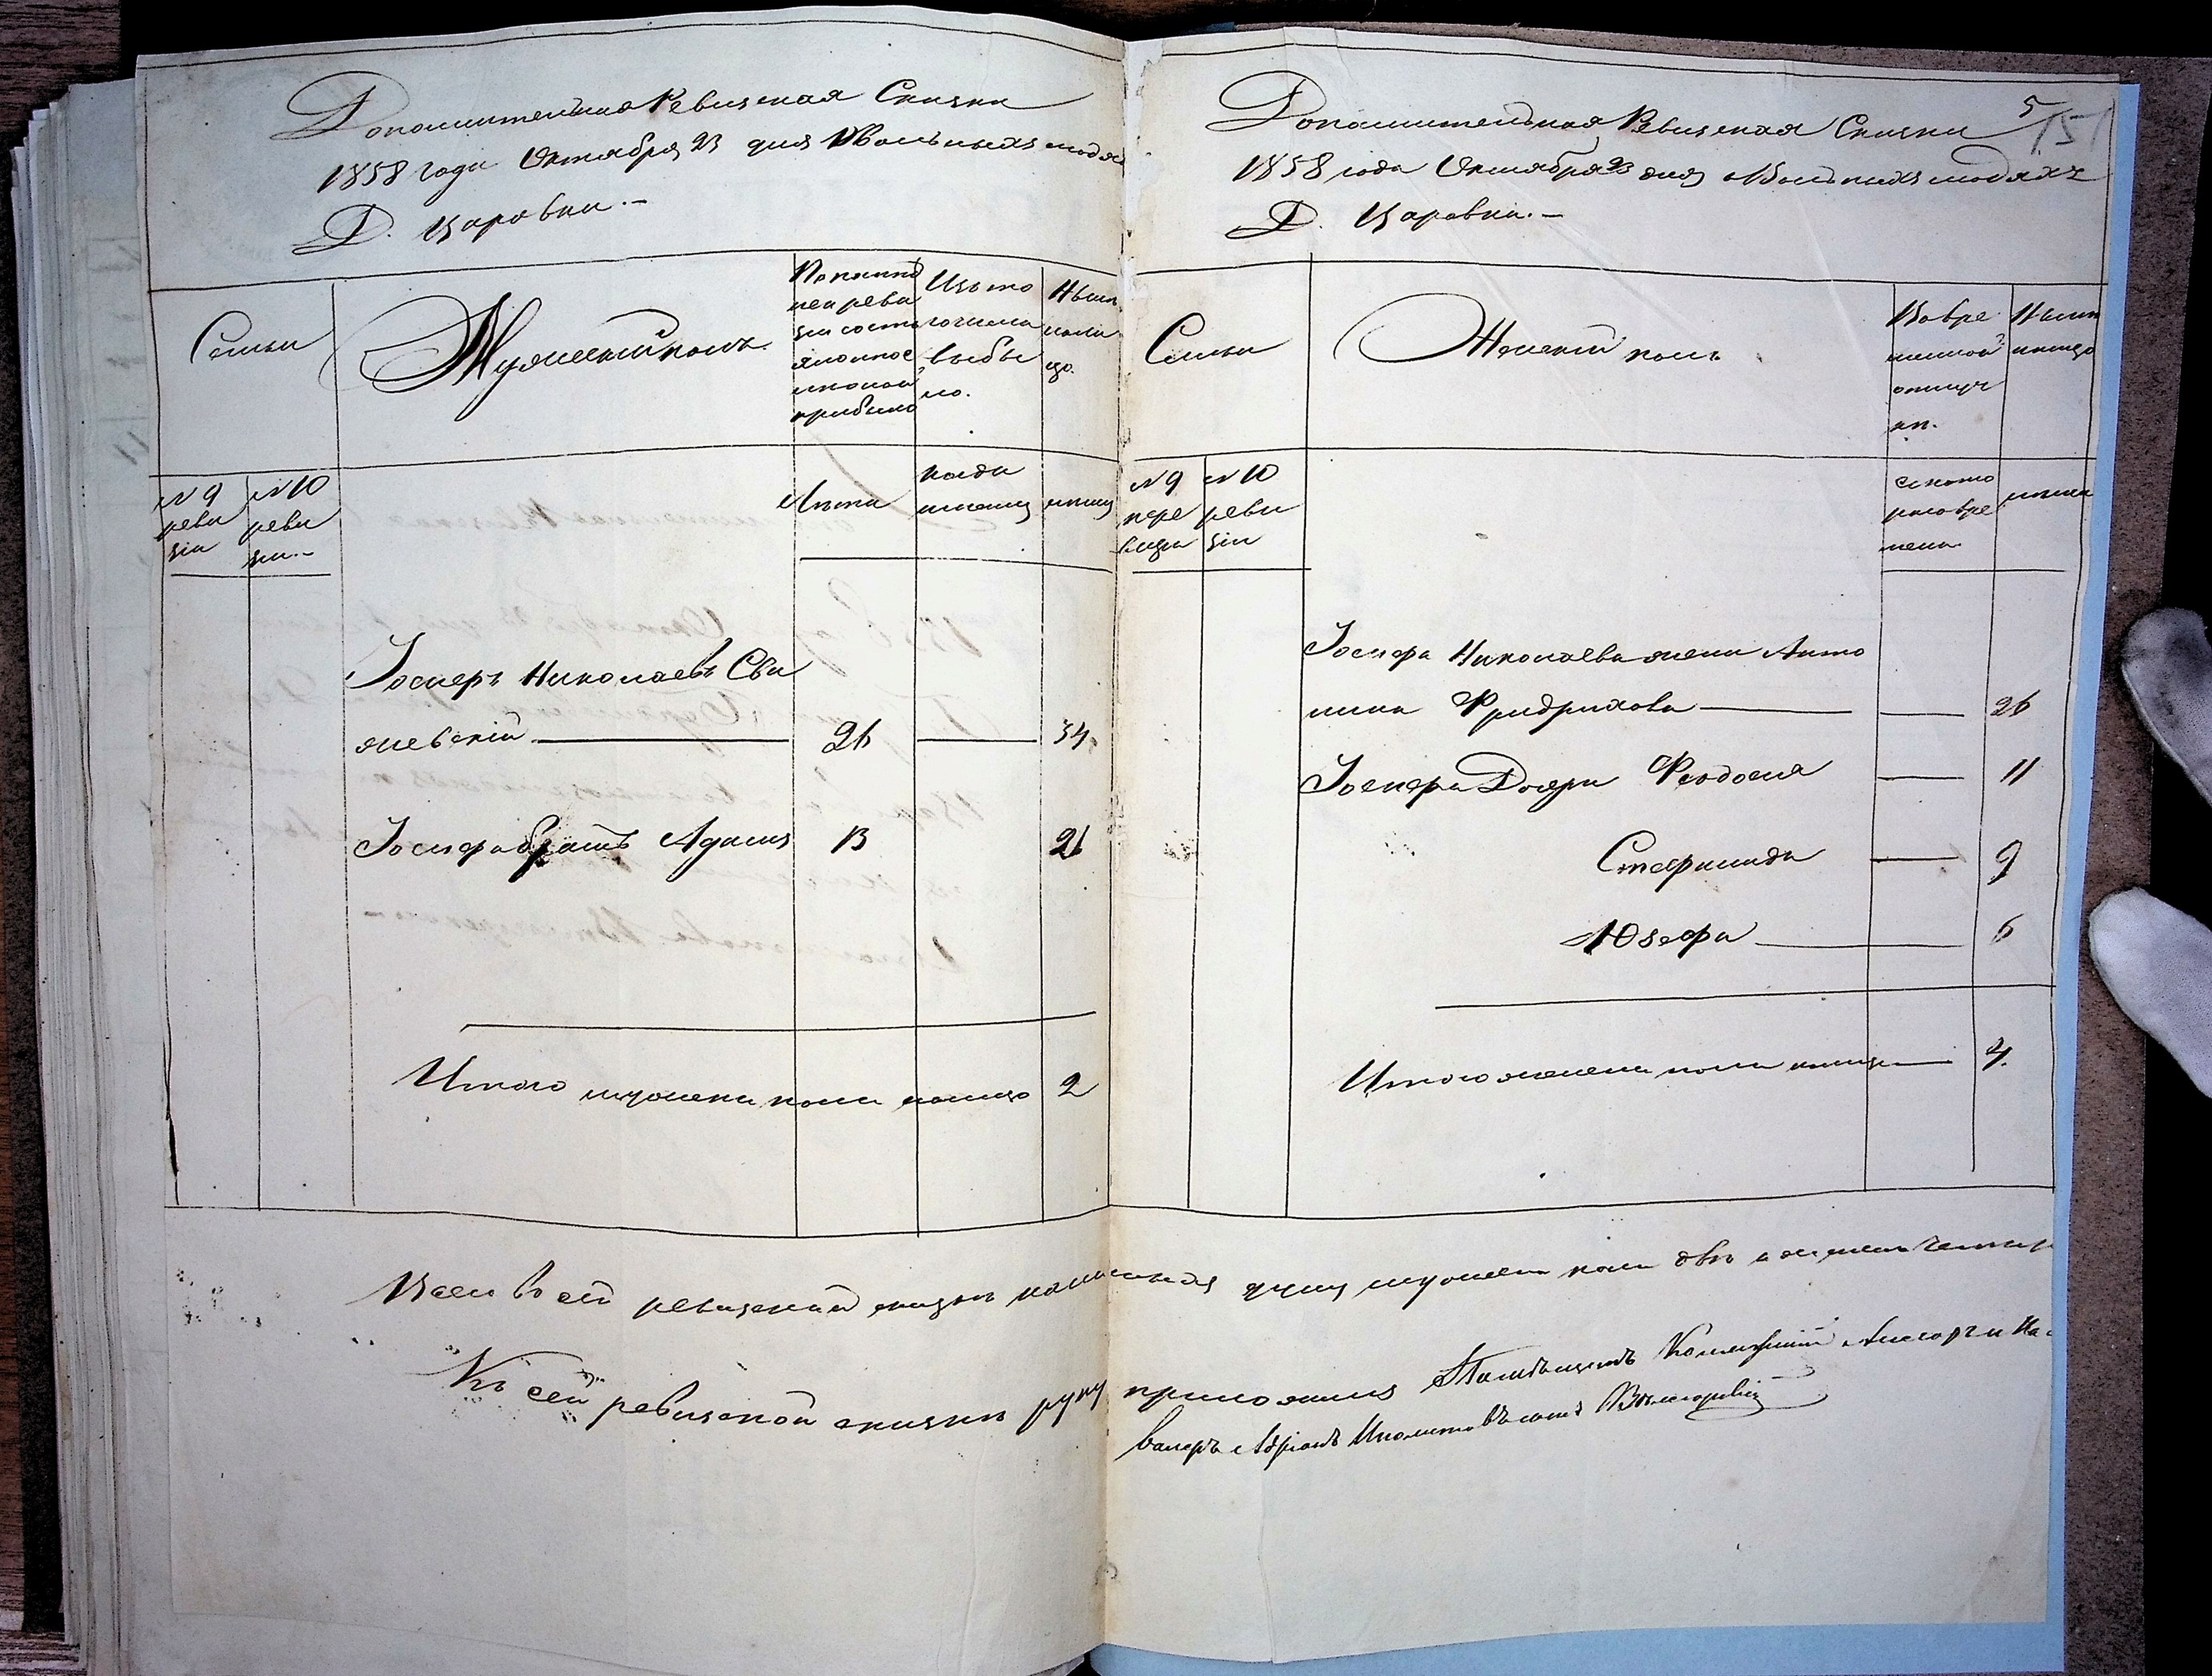 Дополнительная Ревизская Сказка
1858 года Октября 23 дня о Вольныхъ людяхъ
Д. Царовки.
Семьи
Мужескій полъ.
По послѣд
ней реви
зіи состо
яло и пос
лѣ оной
прибыло
Изъ то
го числа
выбы
ло.
Нынѣ
нали
цо.
№ 9
реви
зіи
№ 10
реви
зіи.
Лѣта
когда
именно
лѣта
Іосифъ Николаевъ Сви
жевскій 26 34
Іосифа братъ Адамъ 13 21
Итого мужеска пола налицо 2
Дополнительная Ревизская Сказка 5
1858 года Октября 23 дня о Вольныхъ людяхъ
Д. Царовки.
Семьи
Женскій полъ
Во вре
менной
отлуч
кѣ.
Нынѣ
налицо
№ 9
реви
зіи
№ 10
реви
зіи
съ кото
раго вре
мени.
лѣта
Іосифа Николаева жена Анто
нина Фридрихова 26
Іосифа Дочери Феодосія 11
Стефанида 9
Юзефа 6
Итого женска пола налицо 4.
Всего въ сей ревизской сказкѣ наличныхъ душъ мужеска пола двѣ а женска четыре
Къ сей ревизской сказкѣ руку приложилъ Помѣщикъ Коллежскій Ассесоръ и Ка-
валеръ Адріанъ Иполитовъ сынъ